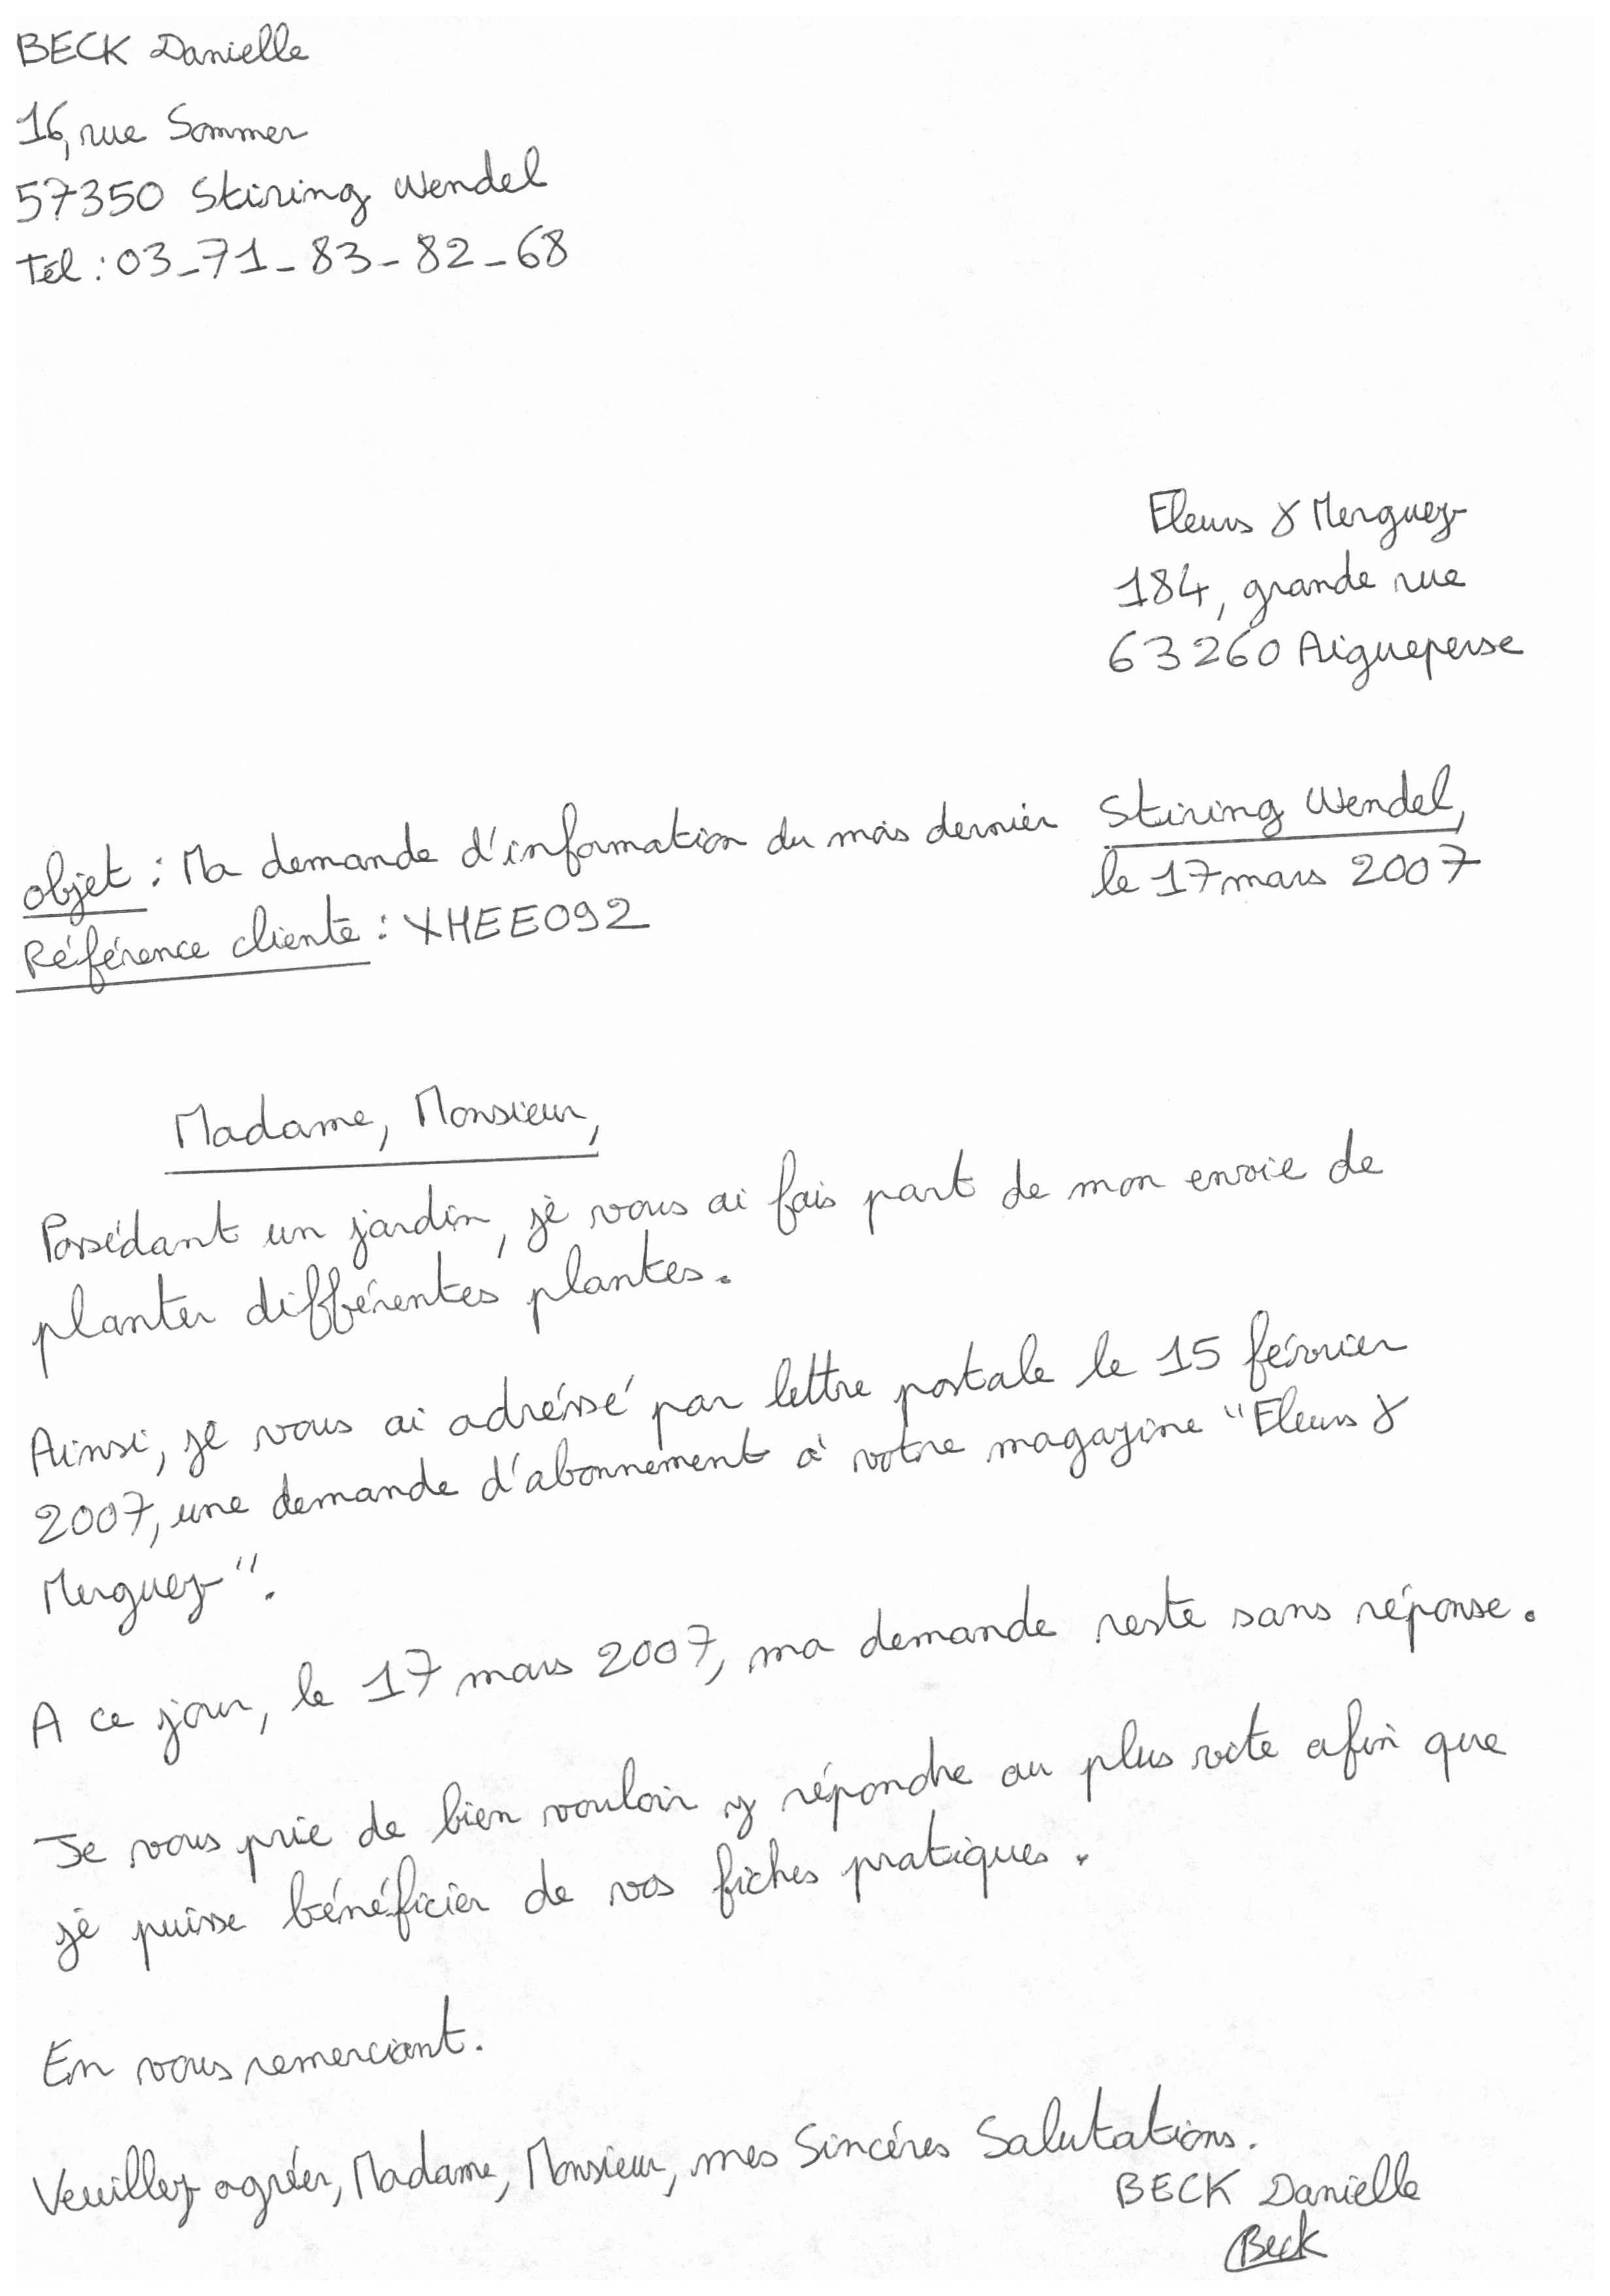 BECK Danielle
16, rue Sommer
57350 Stiring Wendel
Tél : 03_71_83_82_68
Fleurs & Merguez
184, grande rue
63260 Aigueperse
Stiring Wendel,
le 17 mars 2007
objet : Ma demande d'information du mois dernier
Référence cliente : XHEE092
Madame, Monsieur,
Possédant un jardin, je vous ai fais part de mon envie de
planter différentes plantes.
Ainsi, je vous ai adréssé par lettre postale le 15 février
2007, une demande d'abonnement à votre magazine "Fleurs &
Merguez".
A ce jour, le 17 mars 2007, ma demande reste sans réponse.
Je vous prie de bien vouloir y répondre au plus vite afin que
je puisse bénéficier de vos fiches pratiques.
En vous remerciant.
Veuillez agréer, Madame, Monsieur, mes Sincéres Salutations.
BECK Danielle
Beck